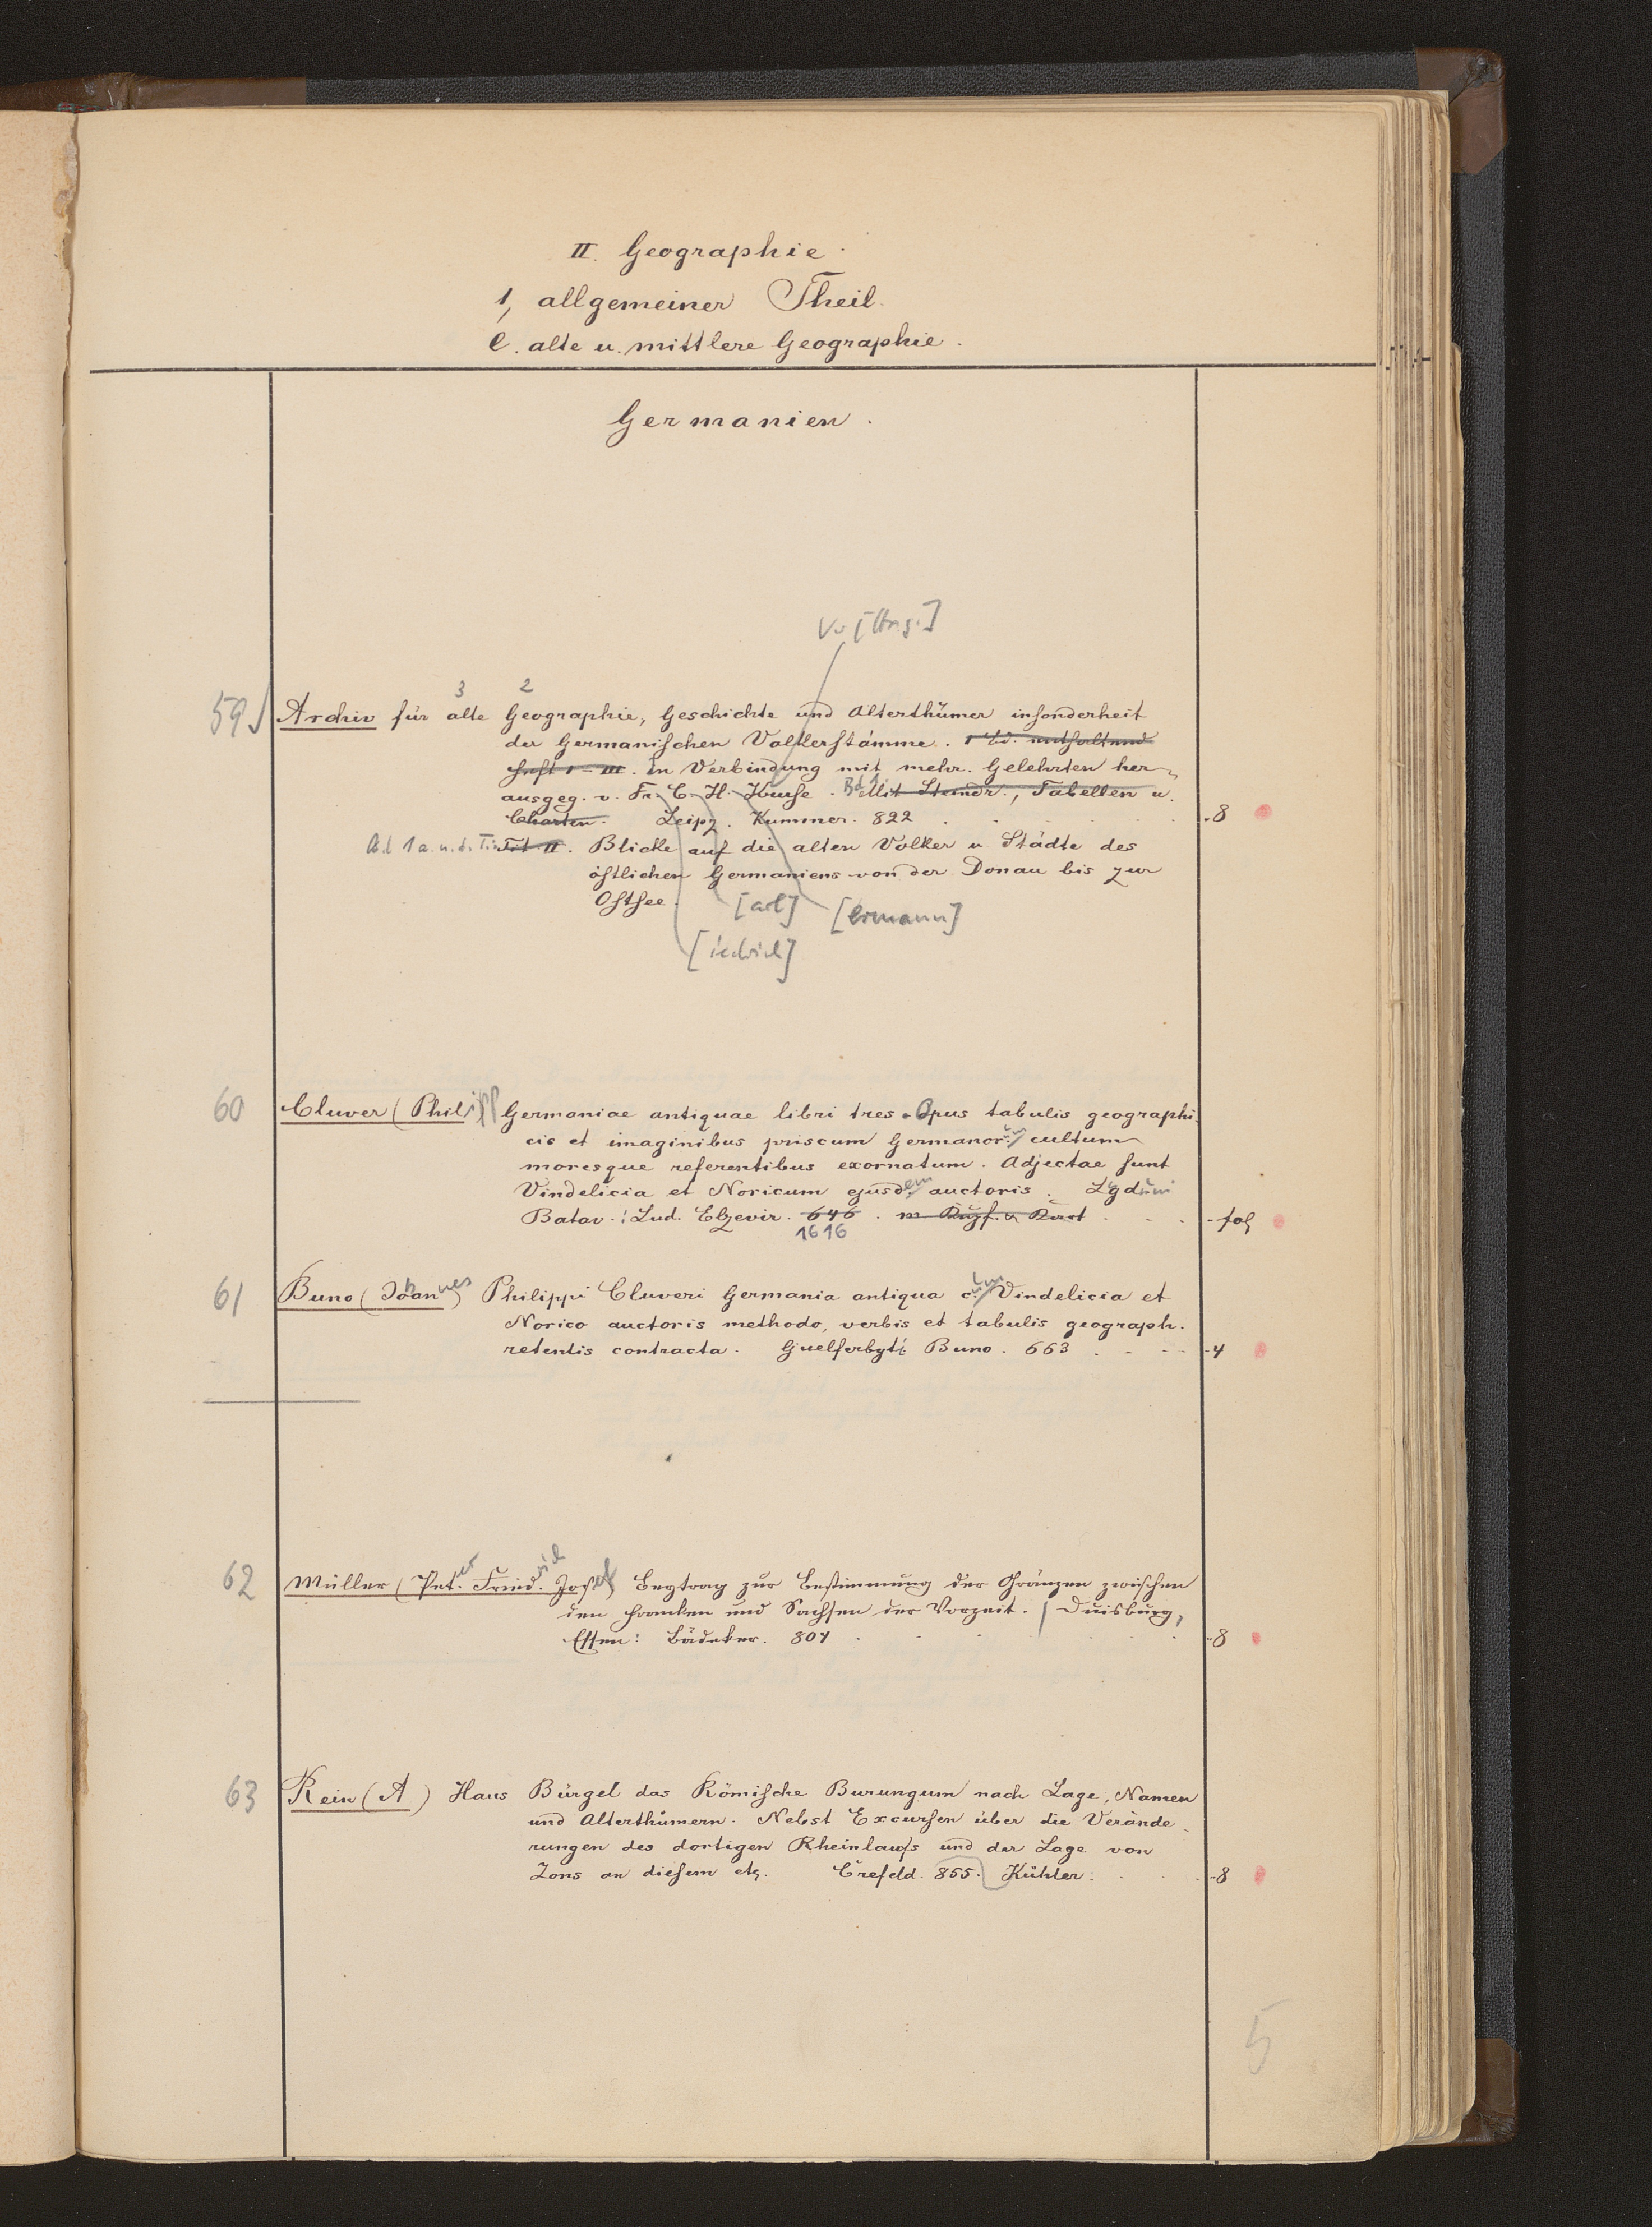 II. Geographie.
1, allgemeiner Theil.
C. alte u. mittlere Geographie.
Germanien.
V. [Hrsg.]
3 2
59 Archiv für alte Geographie, Geschichte und Alterthümer insonderheit
der Germanischen Volkerstämme. 1 Bd. enthaltend
Heft I-III. In Verbindung mit mehr. Gelehrten her-
ausgeg. v. Fr. C. H. Kruse. Bd 1. Mit Steindr., Tabellen u.
Charten. Leipz. Kummer. 822 . . . . 8
Bd 1 a. u. d. T.: Tit. II. Blicke auf die alten Völker u Städte des
östlichen Germaniens von der Donau bis zur
Ostsee.
[arl] [ermann]
[iedrich]
60 Cluver (Philipp) Germaniae antiquae libri tres. Opus tabulis geographi-
cis et imaginibus priscum Germanorum cultum
moresque referentibus exornatum. Adjectae sunt
Vindelicia et Noricum ejusdem auctoris. Lugduni
Batav.: Lud. Elzevir. 646. m Kupf. u Port . . . fol
1616
61 Buno (Johannes) Philippi Cluveri Germania antiqua cum Vindelicia et
Norico auctoris methodo, verbis et tabulis geograph.
retentis contracta. Guelferbyti: Buno. 663 . - - - 4
62 Müller (Peter Friedrich Josef) Beytrag zur Bestimmung der Gränzen zwischen
den Franken und Sachsen der Vorzeit. / Duisburg,
Essen: Bädeker. 804 . . . . 8
63 Rein (A) Haus Bürgel das Römische Burungum nach Lage, Namen
und Alterthümern. Nebst Excursen über die Verände-
rungen des dortigen Rheinlaufs und der Lage von
Zons an diesem etc. Crefeld. 855. Kühler. . . . 8
5